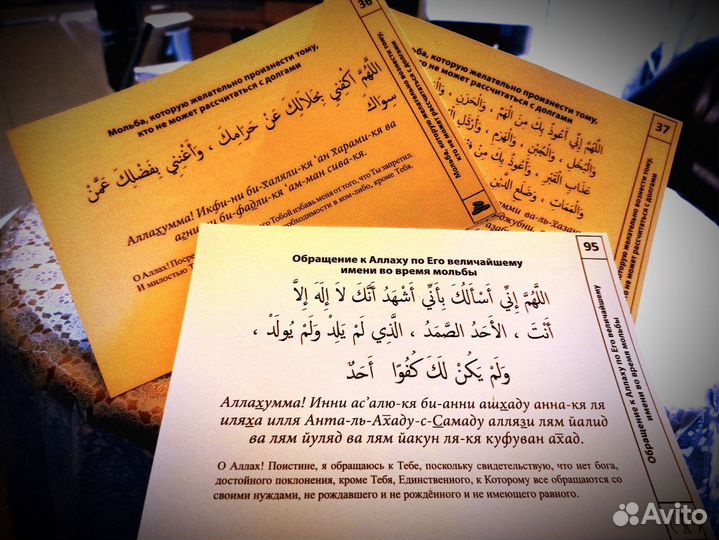 36
Мольба, которую желательно произнести тому,
кто не может рассчитаться с долгами
اللَّهُمَّ اكْفِنِي بِحَلَالِكَ عَنْ حَرَامِكَ ، وَأَغْنِنِي بِفَضْلِكَ عَمَّنْ
سِوَاكَ
Аллахумма! Икфи-ни би-халяли-кя 'ан харами-кя ва
агнини би-фадли-кя 'ам-ман сива-кя.
О Аллах! Посре
Тобой избавь меня от того, что Ты запретил.
И милостью Т
обходимости в ком-либо, кроме Тебя.
Мольба, которую желательно вознести тому,
кто не может рассчитаться с долгами
37
ьба, которую желательно произнести тому,
кто не может рассчитаться с долгами
اللَّهُمَّ إِنِّي أَعُوذُ بِكَ مِنَ الْهَمِّ ، وَالْحَزَنِ ،
وَالْبُخْلِ ، وَالْجُبْنِ ، وَالْهَرَمِ ،
عَذَابِ الْقَبْرِ ،
وَالْمَمَاتِ ، وَضَلَعِ الدَّيْنِ
которую желательно вознести тому,
не может рассчитаться с долгами
95
Обращение к Аллаху по Его величайшему
имени во время мольбы
اللَّهُمَّ إِنِّي أَسْأَلُكَ بِأَنِّي أَشْهَدُ أَنَّكَ لَا إِلَهَ إِلَّا
أَنْتَ ، الأَحَدُ الصَّمَدُ ، الَّذِي لَمْ يَلِدْ وَلَمْ يُولَدْ ،
وَلَمْ يَكُنْ لَكَ كُفُوًا أَحَدٌ
Аллахумма! Инни ас'алю-кя би-анни ашхаду анна-кя ля
иляха илля Анта-ль-Ахаду-с-Самаду аллязи лям йалид
ва лям йуляд ва лям йакун ля-кя куфуван ахад.
О Аллах! Поистине, я обращаюсь к Тебе, поскольку свидетельствую, что нет бога,
достойного поклонения, кроме Тебя, Единственного, к Которому все обращаются со
своими нуждами, не рождавшего и не рождённого и не имеющего равного.
Обращение к Аллаху по Его величайшему
имени во время мольбы
Avito